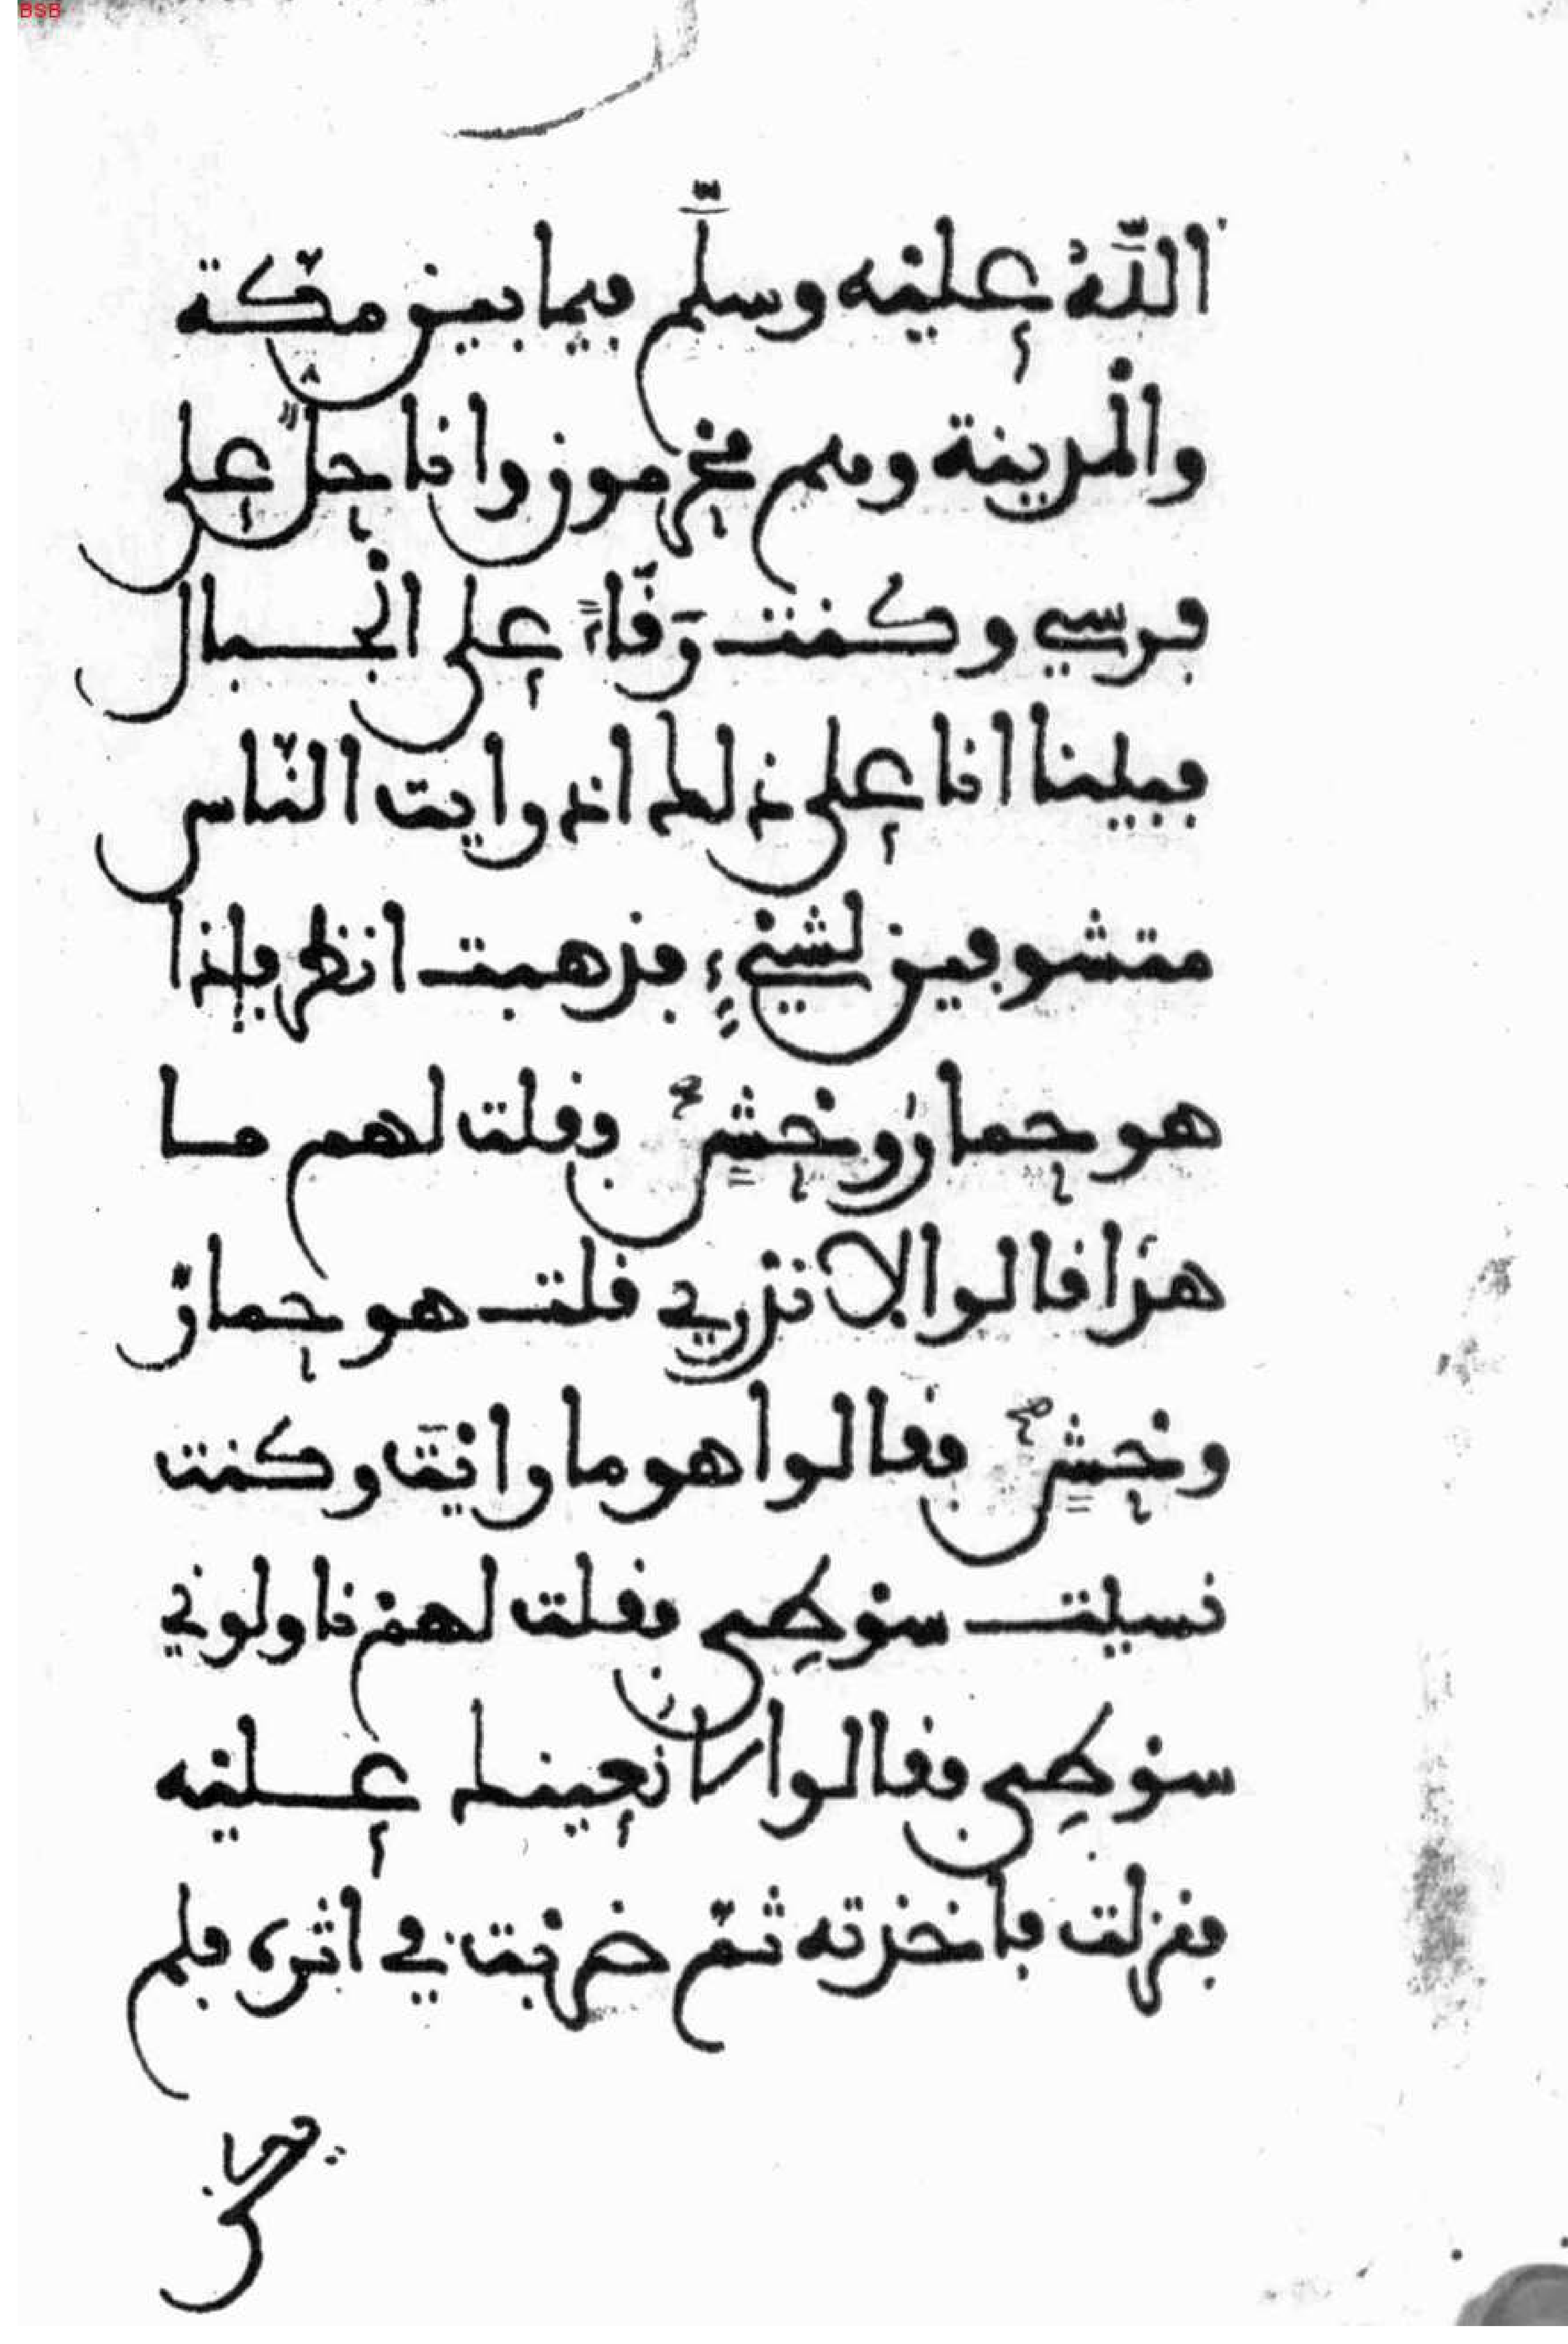 BSB
اللَّهُ عليْه وسلَّم فيما بين مكّة
والْمدينة وهم مخرمون وانا حلٌّ على
فرسي وكنت رَقّاءً على الْجبال
فبينا انا على ذلك اذ رايت النّاس
متشوفين لشيْءٍ فذهبت انظر فإذا
هو حمارُ وحْشٍ فقلت لهم ما
هذَا قالوا لا ندْري قلت هو حمارٌ
وحْشٍ فقالوا هو ما رايْتَ وكنت
نسيت سوْطِى فقلت لهمْ ناولوني
سوْطِى فقالوا لا نُعينك عليْه
فنزلت فاخذته ثمّ ضربْت في اثره فلم
يكن